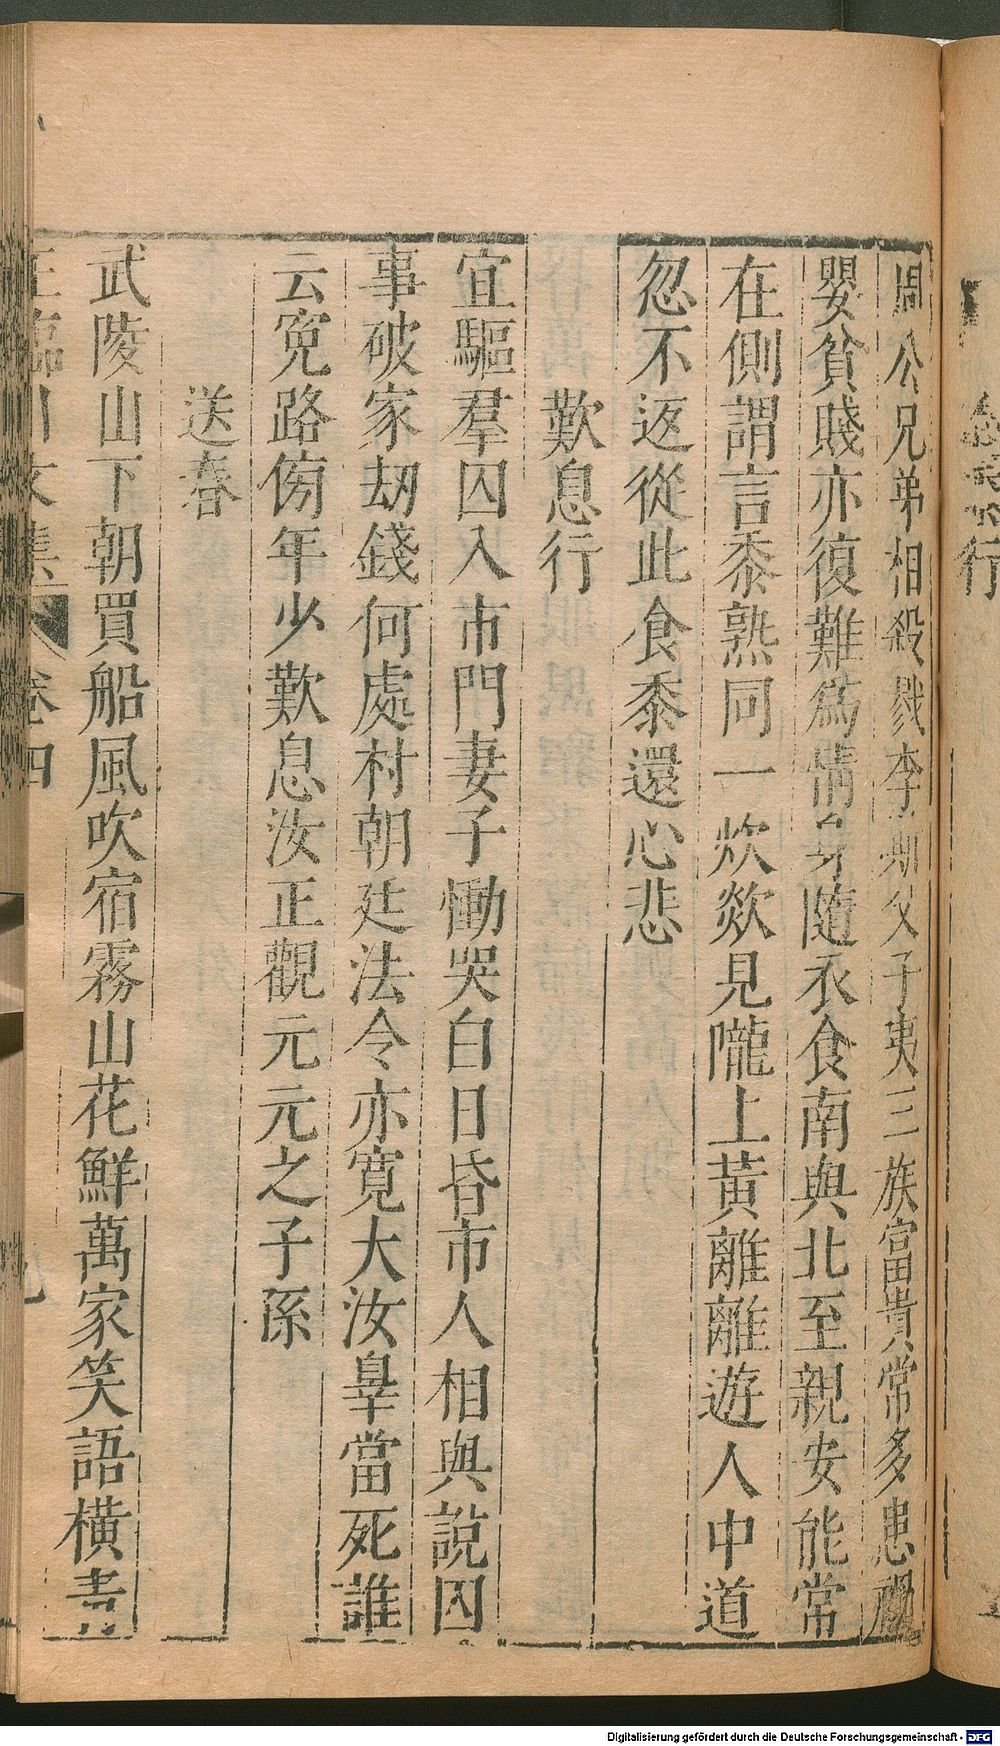 周公兄弟相殺戮李斯父子夷三族富貴常多患禍
嬰貧賤亦復難爲情身隨衣食南與北至親安能常
在側謂言黍熟同一炊欻見隴上黃離離遊人中道
忽不返從此食黍還心悲
歎息行
宜驅羣囚入市門妻子慟哭白日昏市人相與說囚
事破家刼錢何處村朝廷法令亦寬大汝辠當死誰
云寃路傍年少歎息汝正觀元元之子孫
送春
武陵山下朝買船風吹宿霧山花鮮萬家笑語橫青
王臨川文集 卷四 九
行
Digitalisierung gefördert durch die Deutsche Forschungsgemeinschaft - DFG